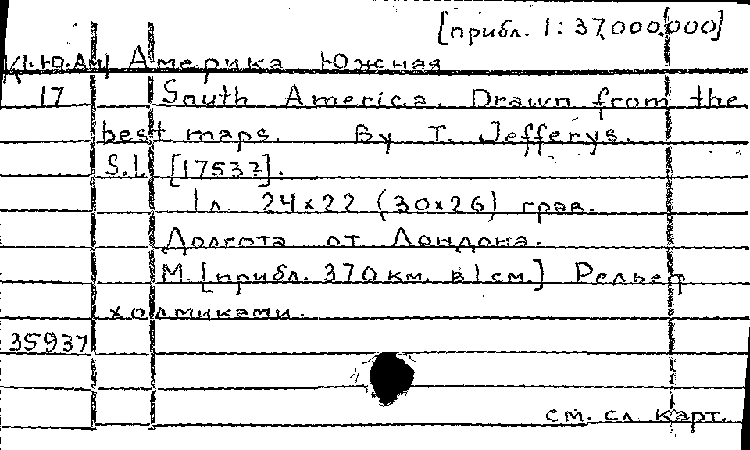 [прибл. 1:37,000,000]
К1.Ю.АМ Америка Южная
17 South America. Drawn from the
best maps. By T. Jefferys.
S.l. [1753?].
1 л. 24×22 (30×26) грав.
Долгота от Лондона.
М. [прибл. 370 км. в 1 см.] Рельеф
холмиками.
35937
см. сл. карт.